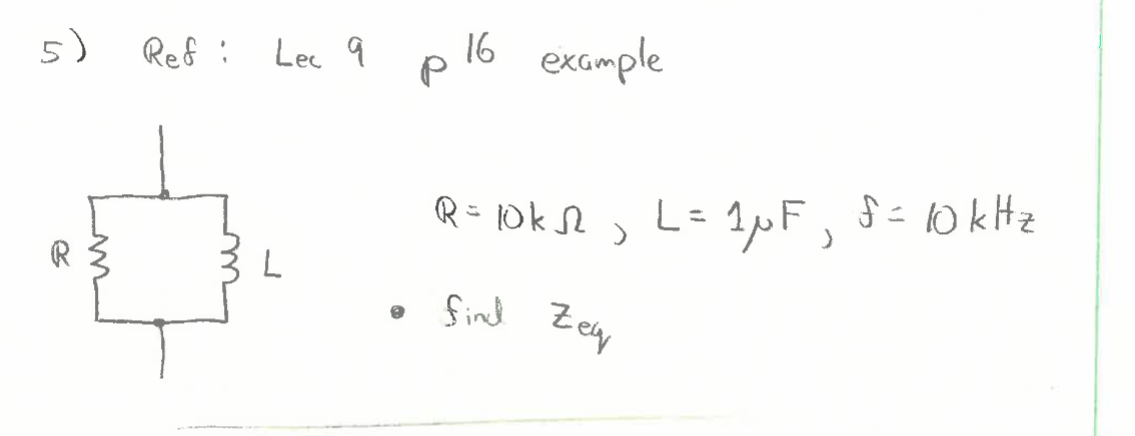 5) Ref : Lec 9 p 16 example
R = 10k Ω , L = 1μF , f = 10 kHz
R
L
• find Zeq